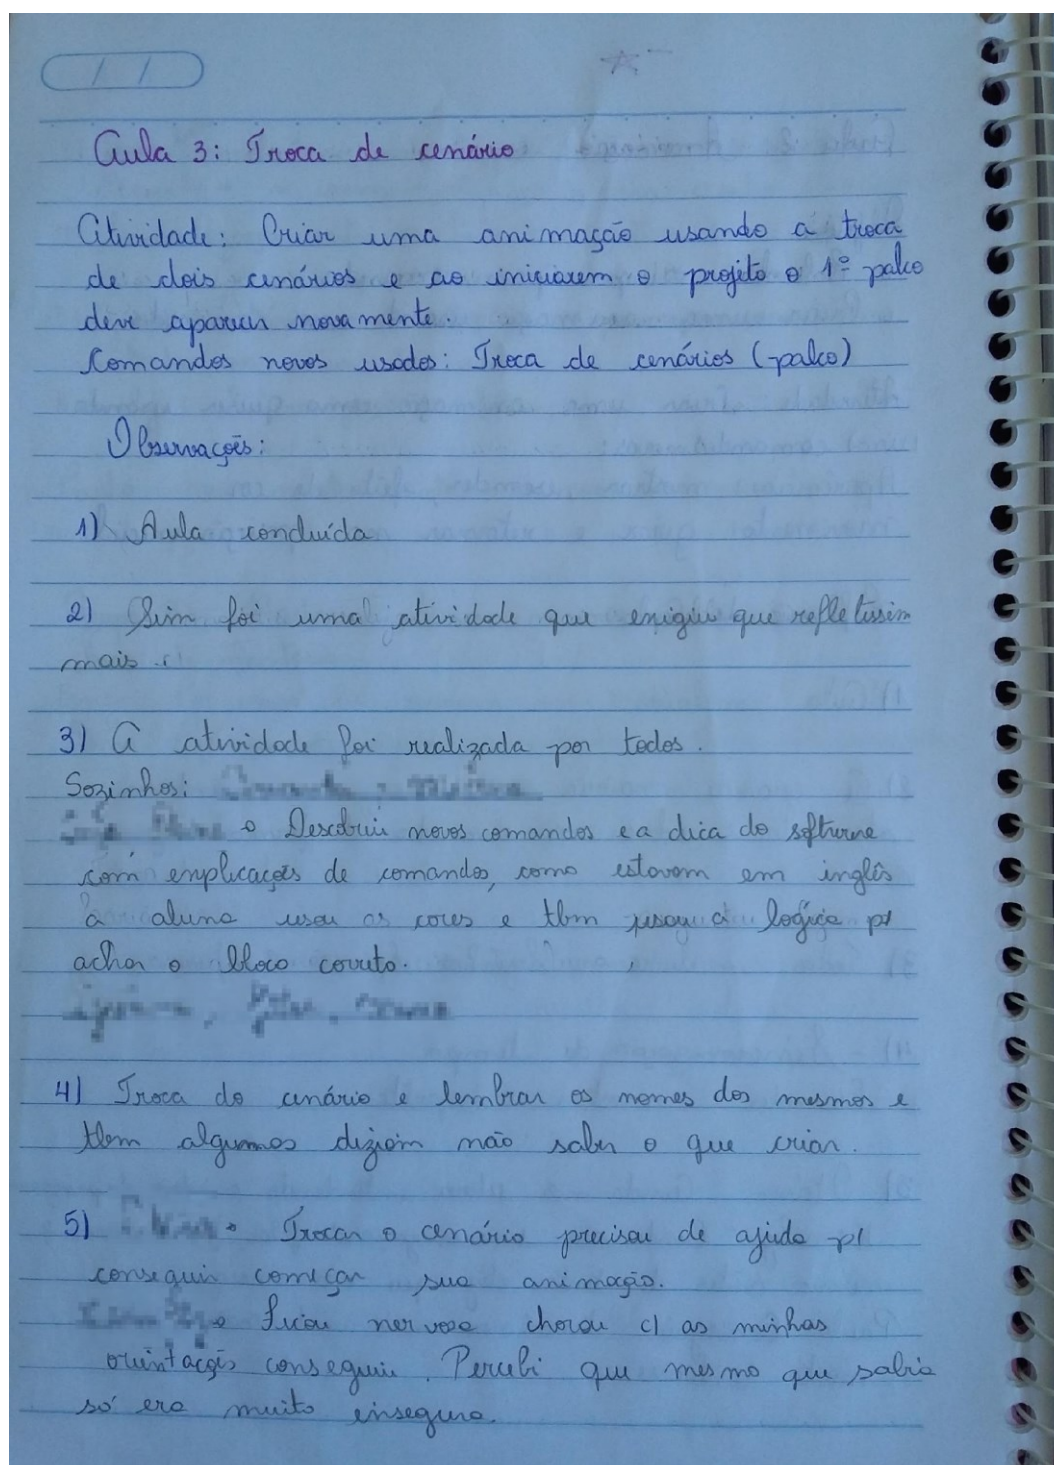 Aula 3: Troca de cenário
Atividade: Criar uma animação usando a troca
de dois cenários e ao iniciarem o projeto o 1º palco
deve aparecer novamente.
Comandos novos usados: Troca de cenários (palco)
Observações:
1) Aula concluída
2) Sim foi uma atividade que exigiu que refletissem
mais.
3) A atividade foi realizada por todos.
Sozinhos:
Descobriu novos comandos e a dica do softwre
com explicações de comandos, como estavam em inglês
a aluna usou as cores e tbm usou a logica p/
achar o bloco correto.
4) Troca do cenário e lembrar os nomes dos mesmos e
tbem algumas diziam não saber o que criar.
5) Trocar o cenário precisou de ajuda p/
conseguir começar sua animação.
Ficou nervosa chorou c/ as minhas
orientações conseguiu. Percebi que mesmo que sabia
só era muito insegura.